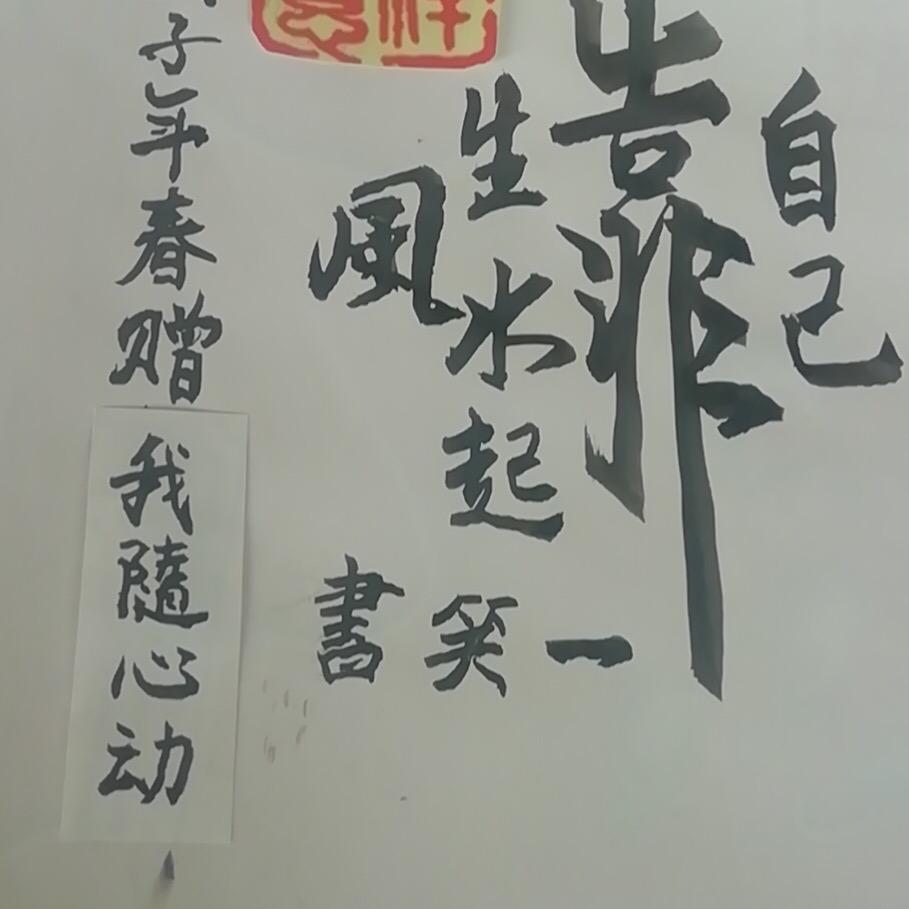 自己
靠
風生水起
一笑書
子年春赠
我隨心动